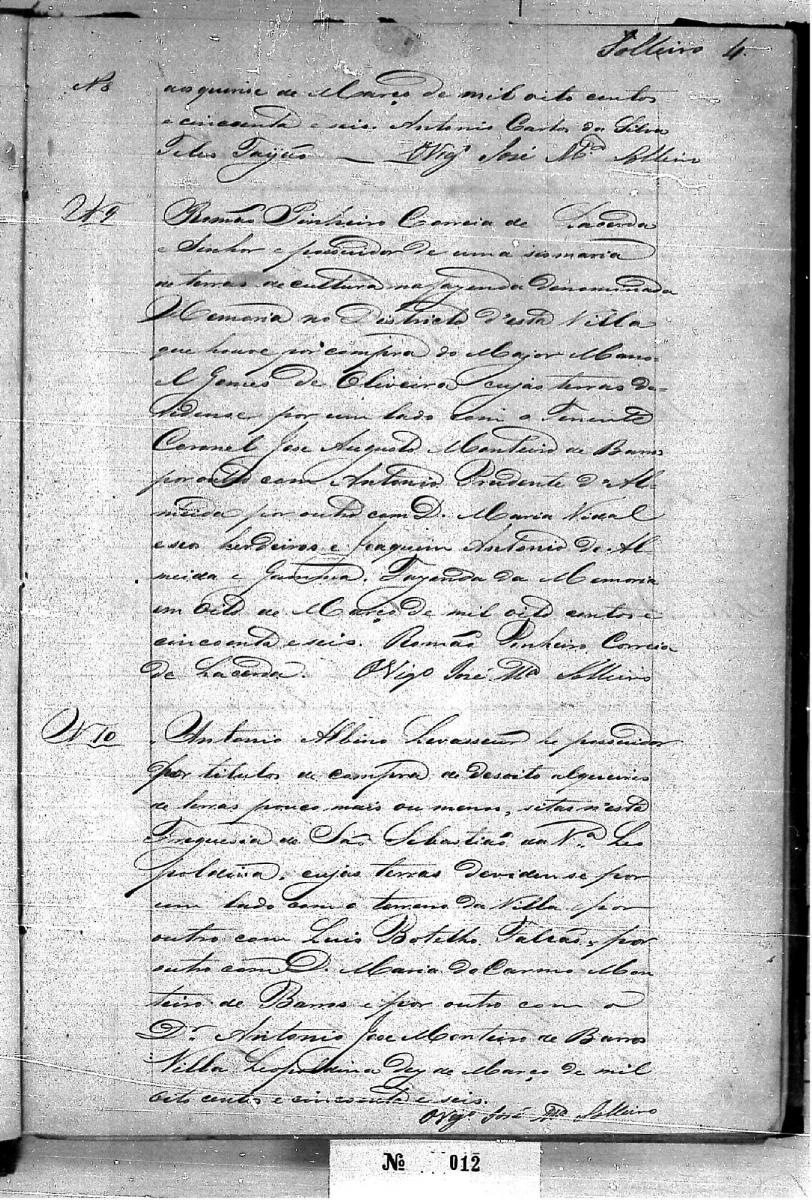 Solleiro 4.
N 8
aos quinse de Março de mil oito centos
e cincoenta e seis. Antonio Carlos da Silva
Teles Fayão — O Vigº José Mª Solleiro
N 9
Romão Pinheiro Correia de Lacerda
e Senhor e possuidor de uma sismaria
de terras de cultura na fazenda denominada
Memoria no Districto d'esta Villa
que houve por compra do Major Mano-
el Gomes de Oliveira, cujas terras de-
videm se por um lado com o Tenente
Coronel Jose Augusto Monteiro de Barros
por outro com Antonio Prudente d'Al
meida por outro com D. Maria Vidal
e seos herdeiros e Joaquim Antonio de Al
meida e Gama. Fazenda da Memoria
em oito de Março de mil oito centos e
cincoenta e seis. Romão Pinheiro Correia
de Lacerda. O Vigº José Mª Solleiro
N 10
Antonio Albino Levasseur he possuidor
por titulos de compra de desoito alqueires
de terras pouco mais ou menos, sitas n'esta
Freguesia de São Sebastião da Nª Leo
poldina, cujas terras devidem se por
um lado com o terreno da Villa e por
outro com Luis Botelho Falcão, por
outro com D. Maria do Carmo Mon
teiro de Barros e por outro com o
Dr. Antonio Jose Monteiro de Barros
Villa Leopoldina dez de Março de mil
oito centos e cincoenta e seis.
O Vigº José Mª Solleiro
Nº 012